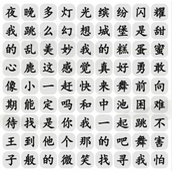 夜晚多灯光缤纷闪耀
我跳么幻想城堡是甜
的乱美妙我的糕蛋蜜
心鹿这感觉真好勇敢
像小一赶快来舞前向
期能定吗和中池困难
待找是你我一起跳不
王到他个那的吧舞害
子般的微笑找寻我怕